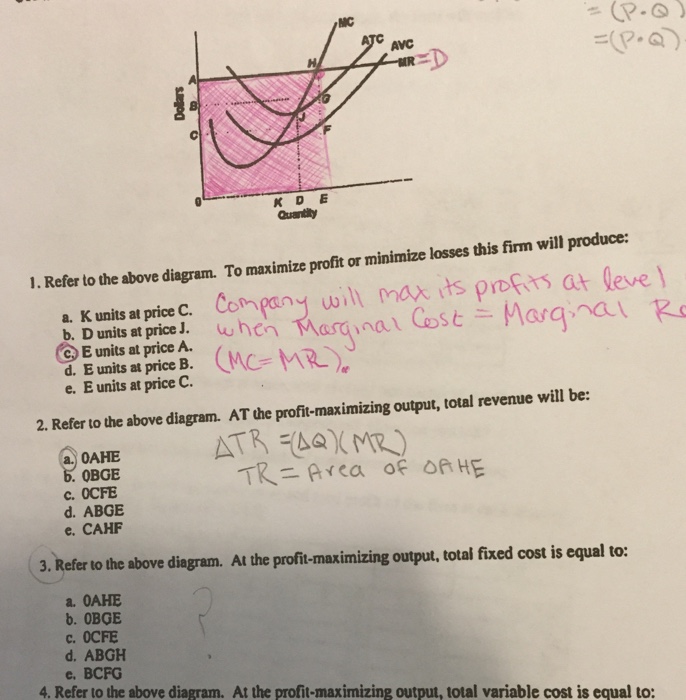 = (P·Q)
=(P·Q)
MC
ATC
AVC
MR=D
H
A
Dollars
B
G
J
C
F
0
K D E
Quantity
1. Refer to the above diagram. To maximize profit or minimize losses this firm will produce:
a. K units at price C.
b. D units at price J.
c. E units at price A.
d. E units at price B.
e. E units at price C.
Company will max its profits at level
when Marginal Cost = Marginal Re
(MC=MR).
2. Refer to the above diagram. AT the profit-maximizing output, total revenue will be:
a. 0AHE
b. 0BGE
c. 0CFE
d. ABGE
e. CAHF
ΔTR =(ΔQ)(MR)
TR = Area of OAHE
3. Refer to the above diagram. At the profit-maximizing output, total fixed cost is equal to:
a. 0AHE
b. 0BGE
c. 0CFE
d. ABGH
e. BCFG
?
4. Refer to the above diagram. At the profit-maximizing output, total variable cost is equal to: